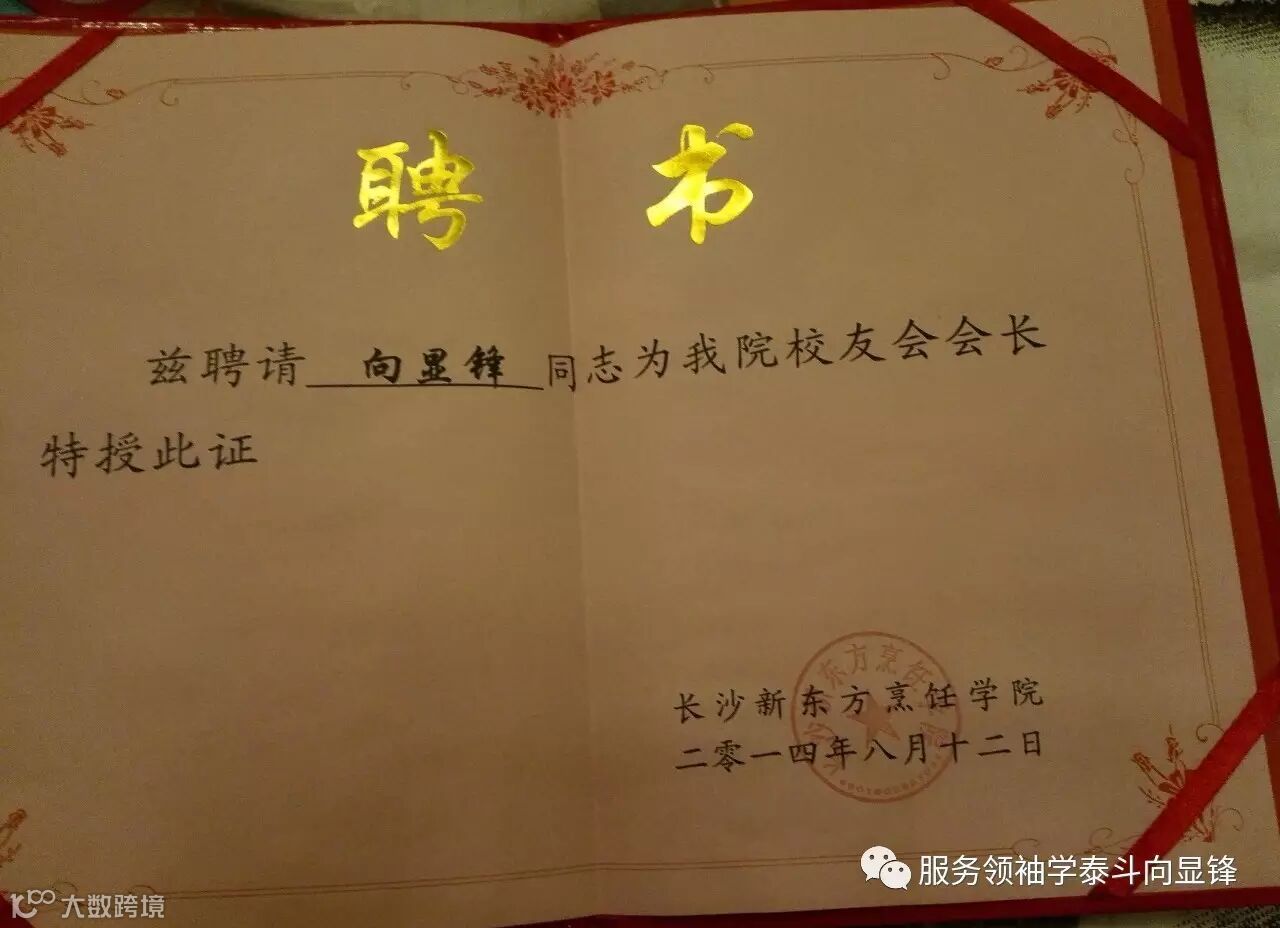 聘书
兹聘请 向显锋 同志为我院校友会会长
特授此证
长沙新东方烹饪学院
二零一四年八月十二日
东方烹饪
服务领袖学泰斗向显锋
大数跨境